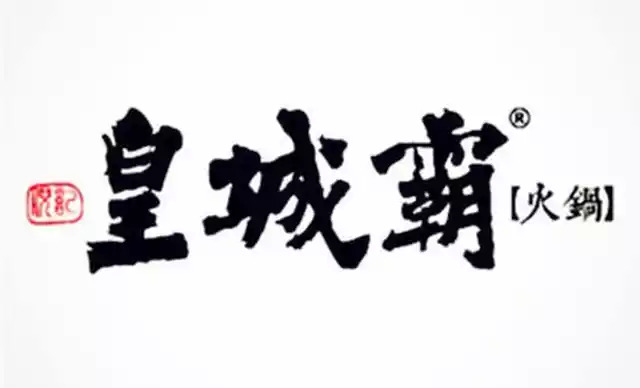 皇城霸®【火鍋】